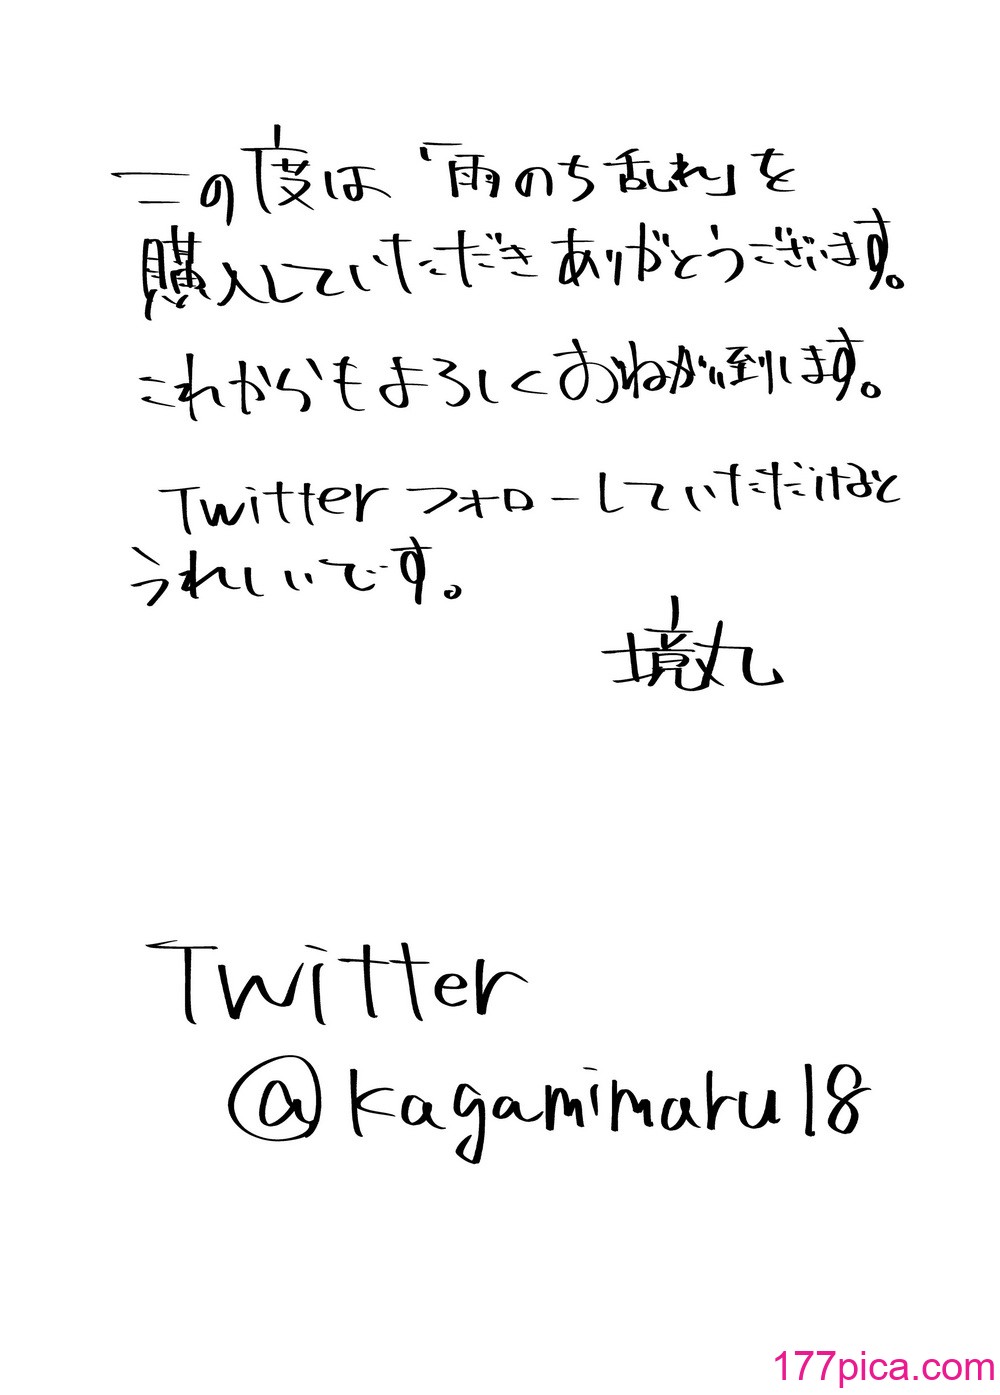 この度は「雨のち乱れ」を
購入していただきありがとうございます。
これからもよろしくおねがい致します。
Twitterフォローしていただけると
うれしいです。
境丸
Twitter
@kagamimaru18
177pica.com